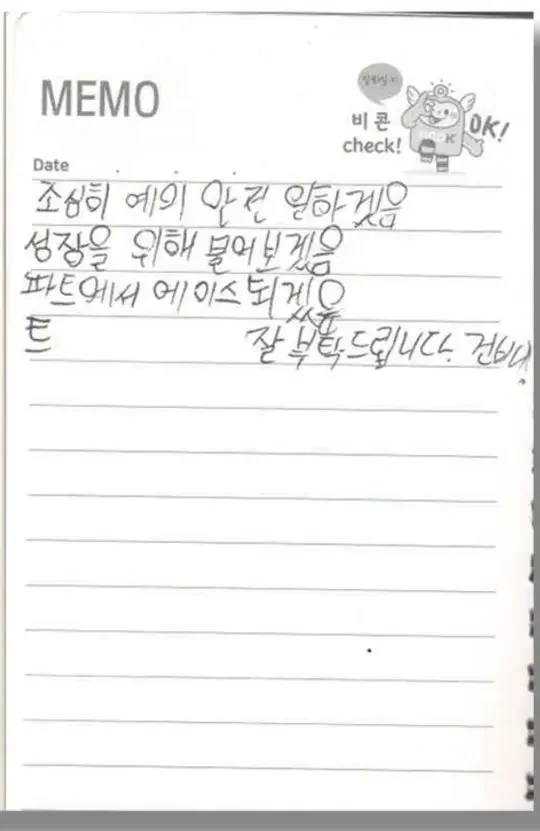 MEMO
비콘
check!
OK!
Date
조심히 예의 안전 일하겠음
성장을 위해 물어보겠음
파트에서 에이스 되겠음
트 잘 부탁드립니다. 건배!